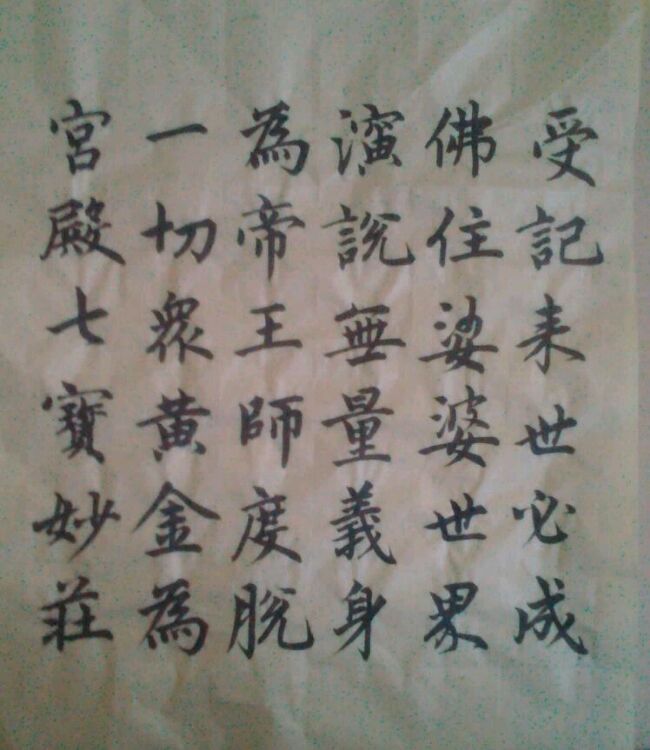 受記来世必成
佛住娑婆世界
演說無量義身
為帝王師度脫
一切眾黃金為
宮殿七寶妙莊